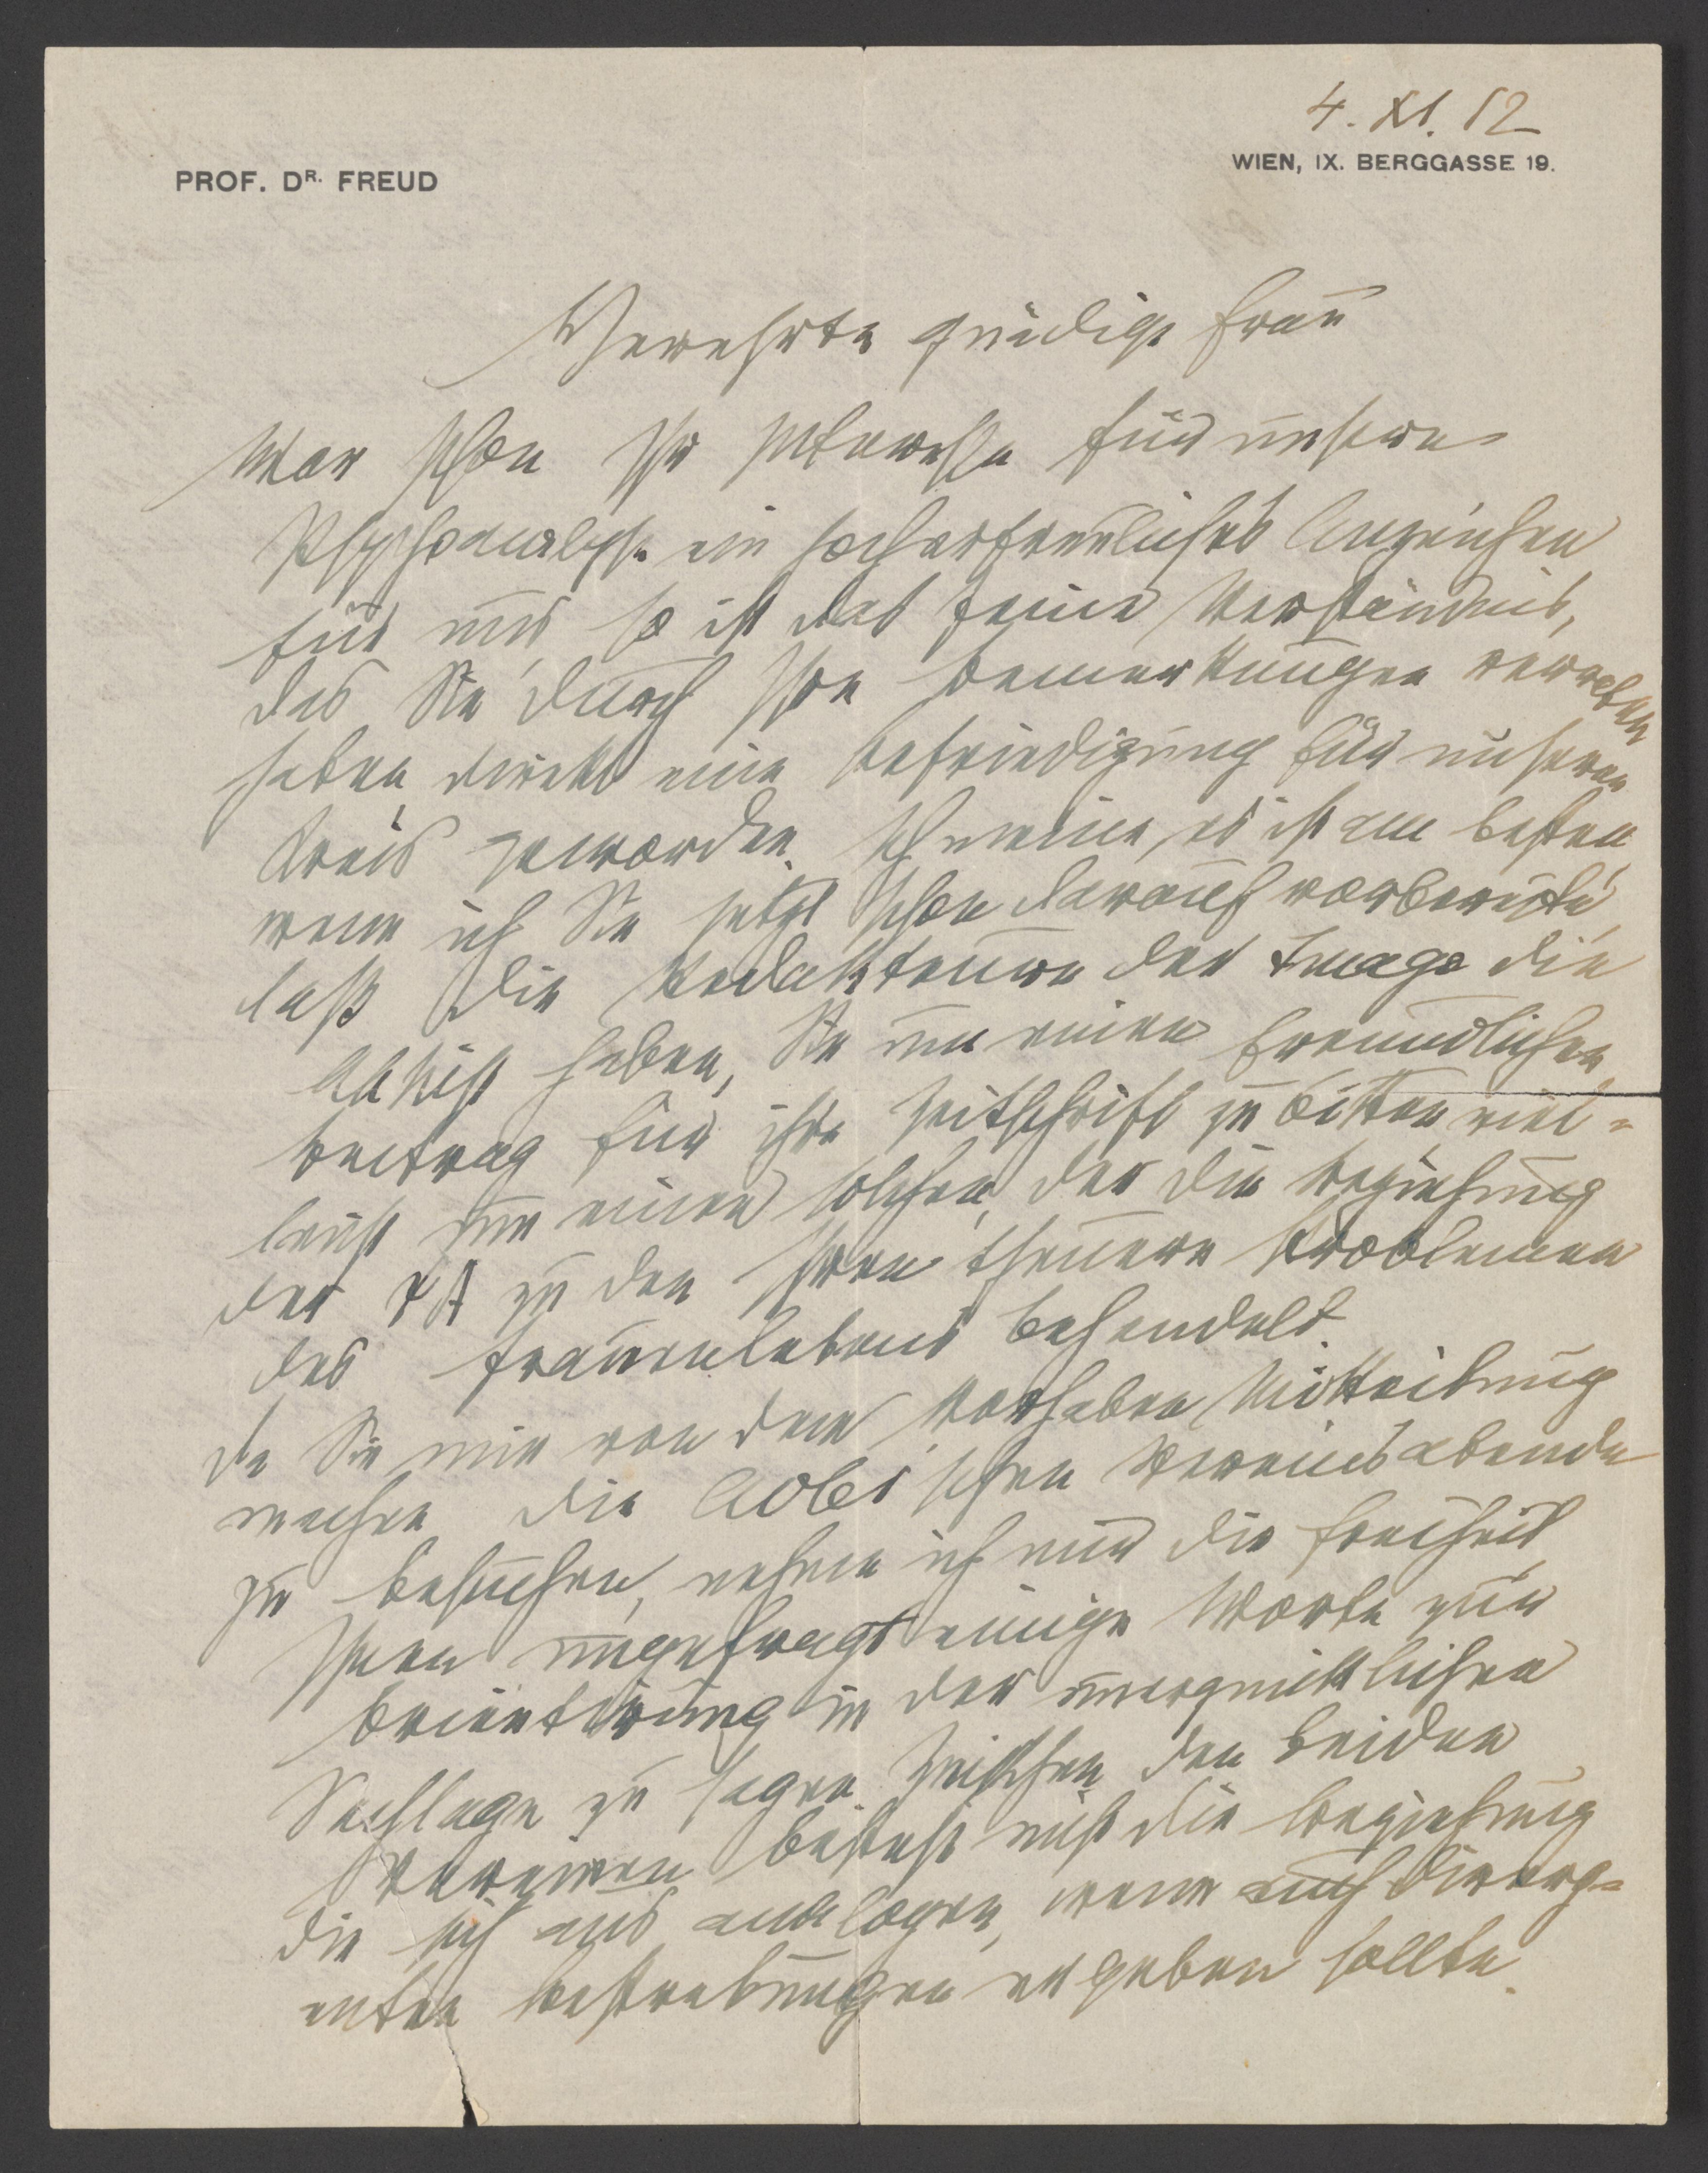 4. XI. 12
PROF. DR. FREUD
WIEN, IX. BERGGASSE 19.
Verehrte gnädige Frau
War schon Ihr Interesse für unsere
Psychoanalyse ein hocherfreuliches Anzeichen
für uns, so ist das feine Verständnis,
das Sie durch Ihre Bemerkungen verraten
haben, direkt eine Befriedigung für unseren
Kreis geworden. Ich meine, es ist am besten,
wenn ich Sie jetzt schon darauf vorbereite,
daß die Redakteure der Imago die
Absicht haben, Sie um einen freundlichen
Beitrag für ihre Zeitschrift zu bitten viel=
leicht um einen solchen, der die Beziehung
der ΨA zu den Ihnen theuern Problemen
des Frauenlebens behandelt.
Da Sie mir von dem Vorhaben Mitteilung
machen die Adler'schen Vereinsabende
zu besuchen, nehme ich mir die Freiheit,
Ihnen ungefragt einige Worte zur
Orientirung in der unerquicklichen
Sachlage zu sagen. Zwischen den beiden
Vereinen besteht nicht die Beziehung
die sich aus analogen, wenn auch diverg=
enten Bestrebungen ergeben sollte.